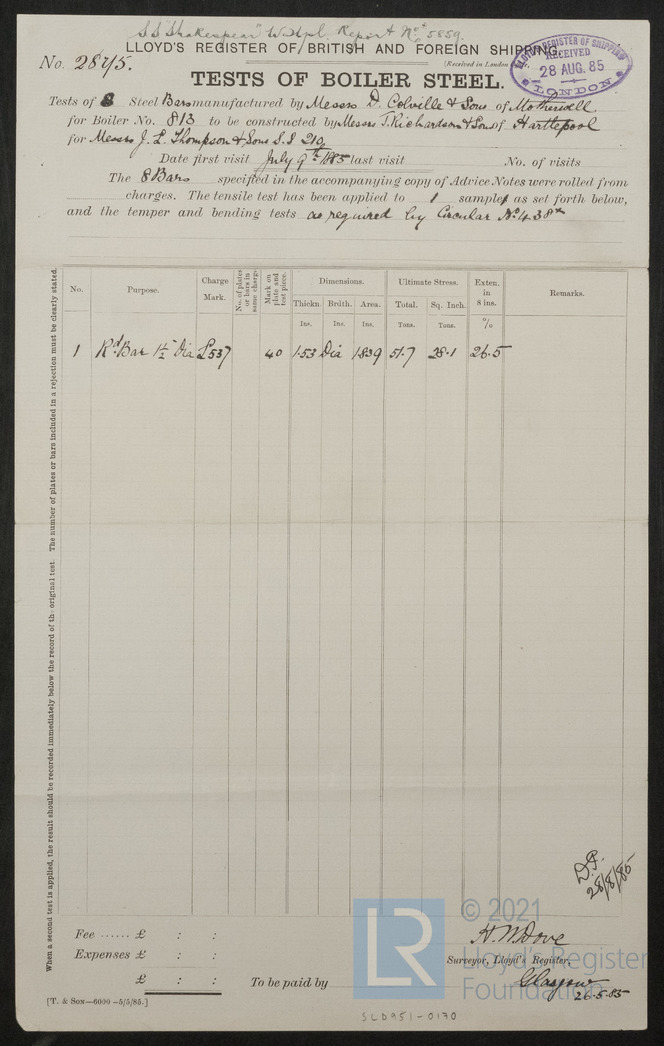 S.S "Shakespear" W. Hpl. Report No. 5859.
LLOYD'S REGISTER OF BRITISH AND FOREIGN SHIPPING.
No. 2875.
(Received in London
LLOYD'S REGISTER OF SHIPPING
RECEIVED
28 AUG. 85
LONDON
TESTS OF BOILER STEEL.
Tests of 8 Steel Bars manufactured by Messrs D. Colville & Sons of Motherwell
for Boiler No. 813 to be constructed by Messrs T. Richardson & Sons of Hartlepool
for Messrs J. L. Thompson & Sons S.S 210
Date first visit July 9th 1885 last visit No. of visits
The 8 Bars specified in the accompanying copy of Advice Notes were rolled from
charges. The tensile test has been applied to 1 sample as set forth below,
and the temper and bending tests as required by Circular No. 438*
When a second test is applied, the result should be recorded immediately below the record of the original test. The number of plates or bars included in a rejection must be clearly stated.
No. Purpose. Charge Mark. No. of plates or bars in same charge. Mark on plate and test piece. Dimensions. Ultimate Stress. Exten. in 8 ins. Remarks.
Thickn. Brdth. Area. Total. Sq. Inch.
Ins. Ins. Ins. Tons. Tons. %
1 Rd. Bar 1½" Dia L537 40 1.53 Dia 1.839 51.7 28.1 26.5
D.F.
28/8/85
Fee ...... £ : :
Expenses £ : :
£ : :
To be paid by
H. W. Dove
Surveyor, Lloyd's Register,
Glasgow
26.5.85
[T. & Son—6000—5/5/85.]
LR
© 2021
Lloyd's Register
Foundation
SLD951-0170